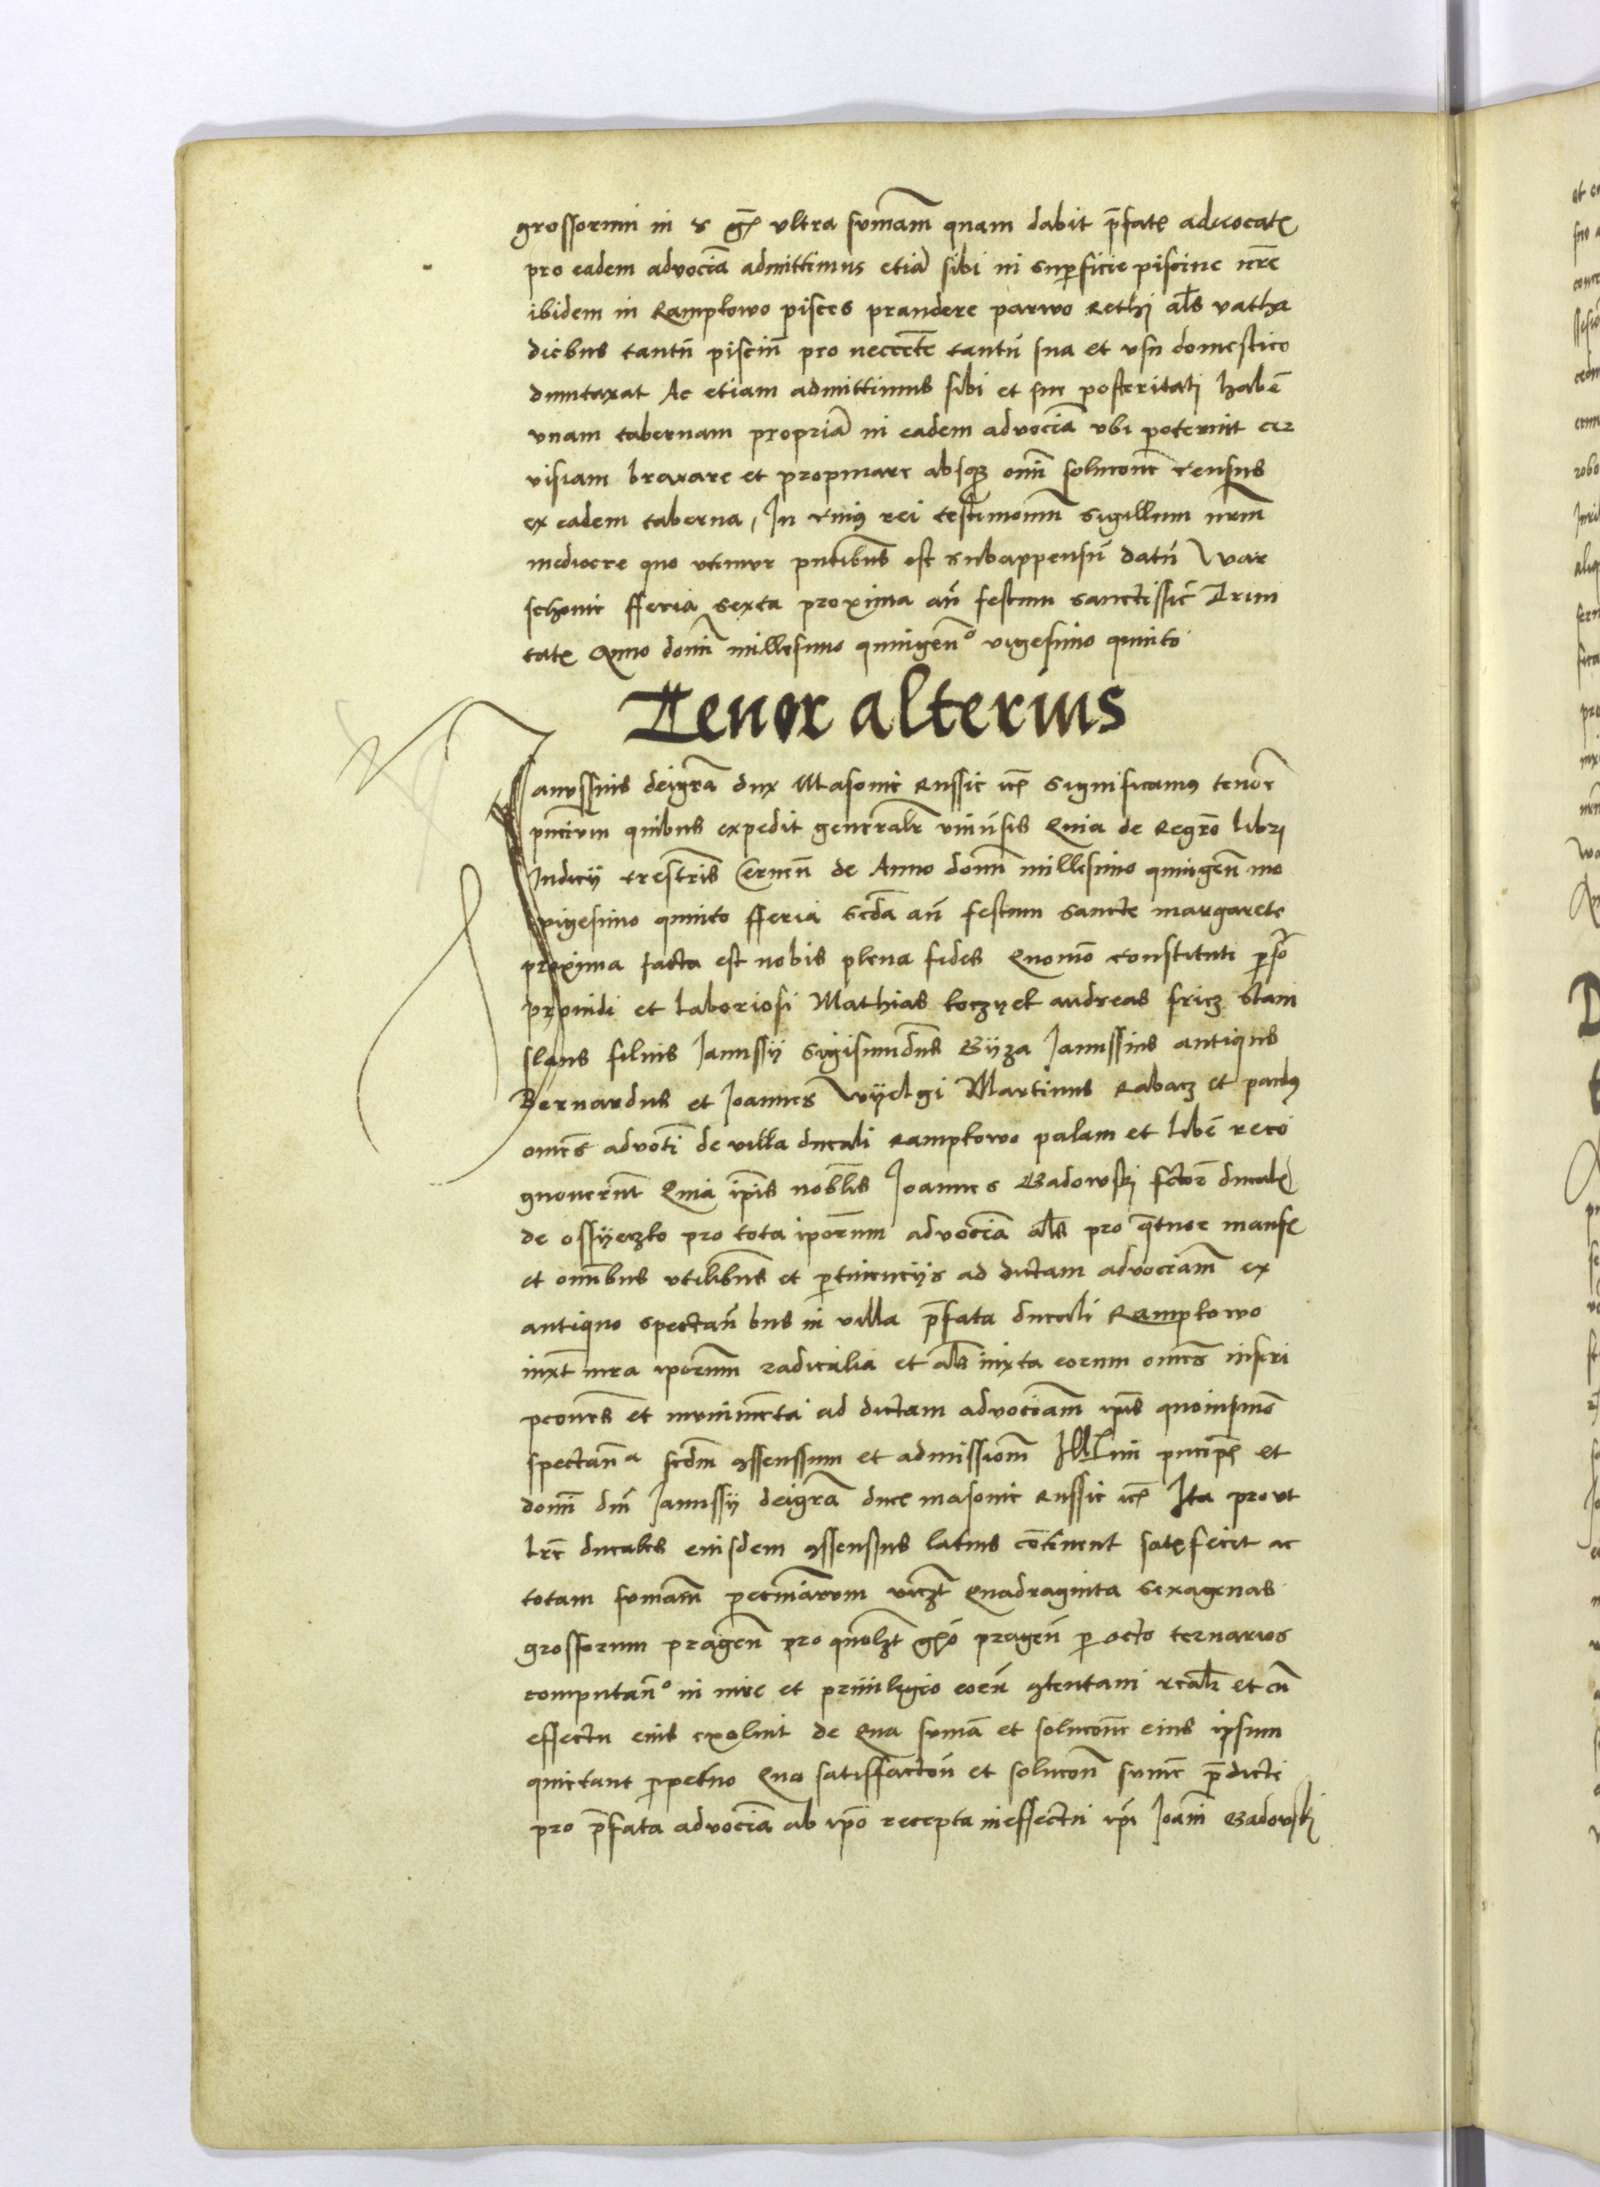 grossorum in s gr ultra sumam quam dabit pfate advocate
pro eadem advocia admittimus etia sibi in superficie piscine nre
ibidem in Ramplowo pisces prandere parwo rethi als vatha
diebus tantu pisciu pro neccte tantu sua et usu domestico
dumtaxat Ac etiam admittimus sibi et sue posteritati habe
unam tabernam propria in eadem advocia ubi poterint cer
visiam braxare et propinare absq omi solucone census
ex eadem taberna, In cuius rei testimonium sigillum nrm
mediocre quo utimur pntibus est subappensu datu War
schovie fferia sexta proxima an festum sanctissie Trini
tate Anno domi millesimo quingeno vigesimo quinto
Tenor alterius
Janussius deigra dux Masovie Russie etc significamus tenore
pncium quibus expedit generalr univsis Quia de Regro libri
Judicij trestris Cernen de Anno domi millesimo quingen mo
vigesimo quinto fferia scda an festum sancte margarete
proxima facta est nobis plena fides Quomo constituti pso
prouidi et laboriosi Mathias koczyel andreas fricz Stani
slaus filius Janussij Sigismundus Gyza Janussius antiqus
Bernardus et Joannes Wyelgi Martinus Rabacz et paulus
omes advoti de villa ducali Ramplowo palam et libe reco
gnoverunt Quia ipis nobilis Joannes Gadowski fctor ducale
de ossyeczko pro tota iporum advocia als pro qtuor manse
et omibus utilibus et ptinencijs ad dictam advociam ex
antiquo spectan bus in villa pfata ducali Ramplowo
iuxt iura iporum radicalia et als iuxta eorum omes inscri
pcones et munimenta ad dictam advociam ipis quomismo
spectan a scdm assenssum et admissiom Illmi pncipe et
domi dni Janussij deigra duce masovie Russie etc Ita prout
lre ducales eiusdem assensus latius continent satisfecit ac
totam sumam pecuniarum viczt Quadraginta sexagenas
grossorum pragen pro quolzt gro pragen p octo ternarios
computano in iure et priuilegio eoru contentam realr et cu
effectu eius exoluit de Qua suma et solucone eius ipsum
quietant ppetuo Qua satisffactou et solucon sume pdicte
pro pfata advocia ab ipo recepta ineffectu ipi Joani Gadowski